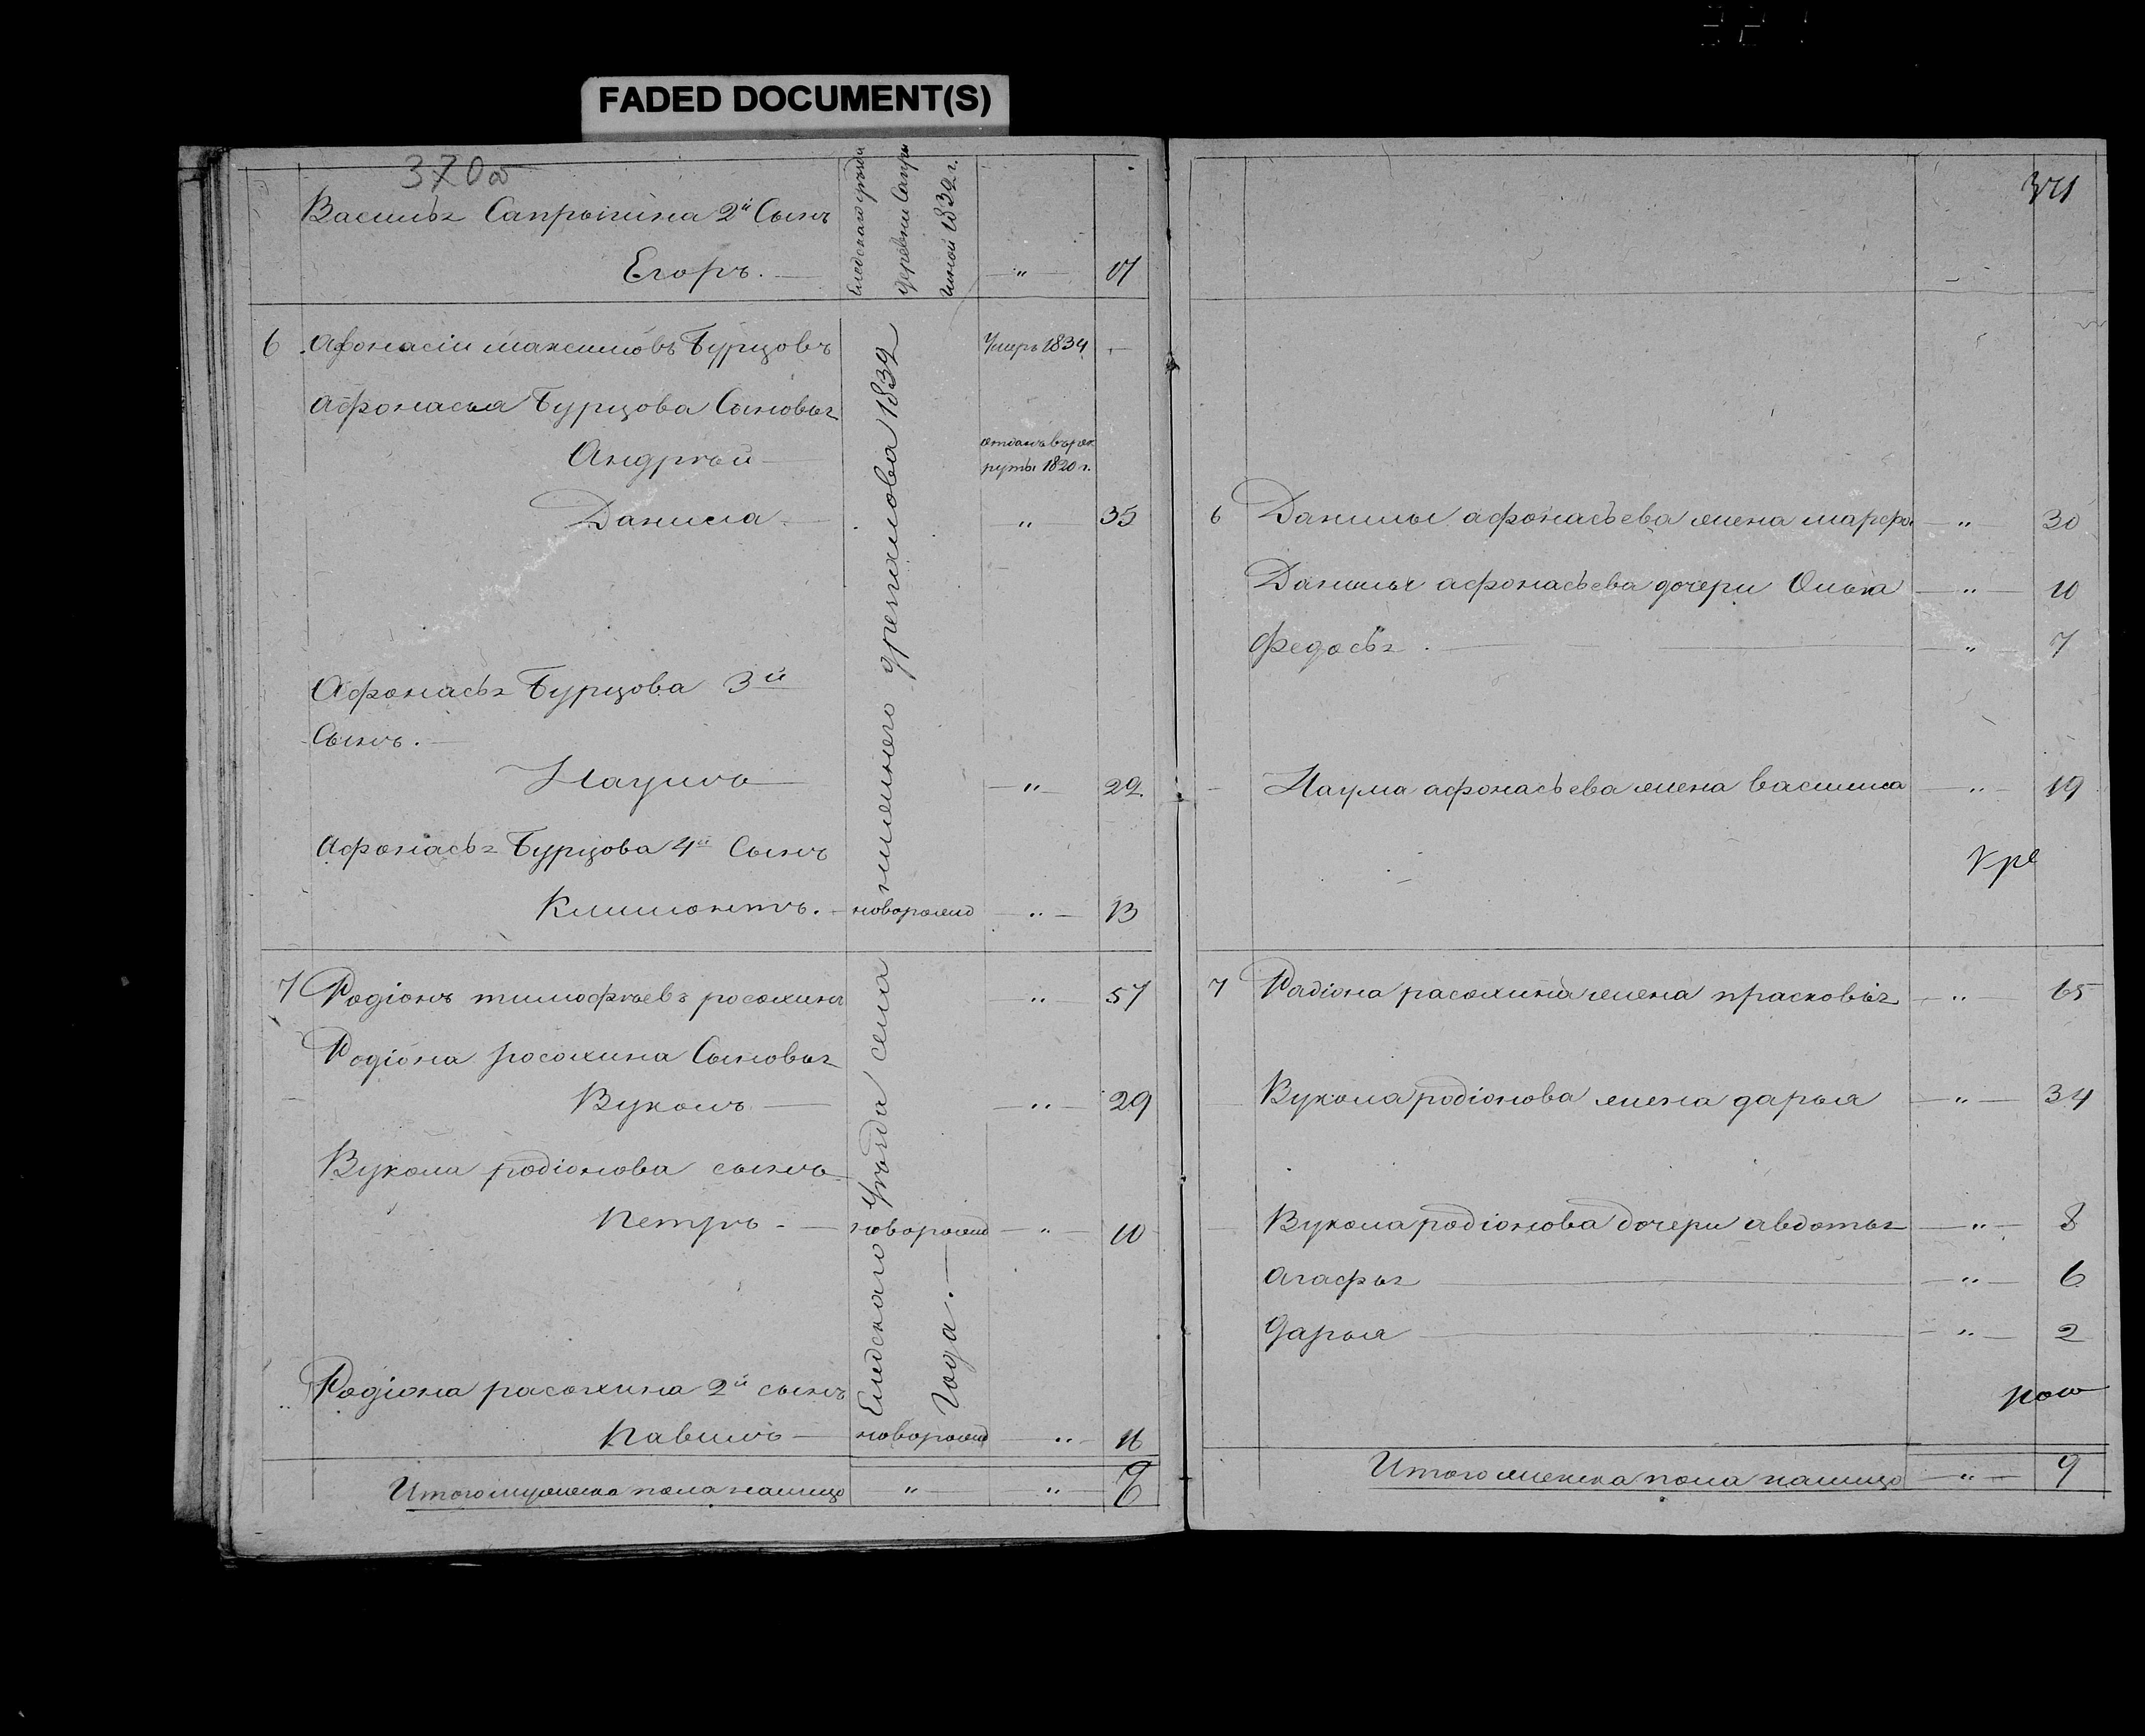 FADED DOCUMENT(S)
370 об
Василья Сапрыкина 2й Сынъ
Егоръ. — " 17
Елецкаго уезда
деревни Сапры
киной 1832 г.
6 Афонасiи максимовъ Бурцовъ
Умеръ 1834 —
Афонасья Бурцова Сыновья
Андрѣй —
отданъ въ рек
руты 1820 г.
Данила — " 35
Афонасья Бурцова 3й
Сынъ. —
Наумъ — " 22
Афонасья Бурцова 4й Сынъ
Климонтъ. — новорожд — " — 13
7 Родiонъ тимофѣевъ росохинъ " 57
Родiона росохина Сыновья
Вуколъ — " — 29
Вукола родiонова сынъ
Петръ. — новорожд — " — 10
Родiона расохина 2й сынъ
Павилъ — новорожд — " — 16
Елецкаго Уѣзда села
нижнего 1832
Года. —
Итого мужеска пола налицо " " 9
371
6 Данилы афонасьева жена марфа — " — 30
Данилы афонасьева дочери Ольга — " — 10
Федосья. — " — 7
Наума афонасьева жена василиса — " — 19
Кре
7 Радiона расохина жена прасковья — " — 65
Вукола родiонова жена дарья — " — 34
Вукола родiонова дочери авдотья — " — 8
агафья — " — 6
Дарья — " — 2
Итого женска пола налицо — " — 9